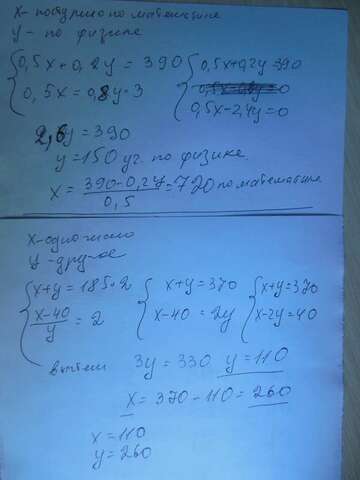 x - поступило по математике
y - по физике
0,5x+0,2y=390
0,5x=0,8y·3
0,5x+0,2y=390
0,5x-2,4y=0
2,6y=390
y=150 уг. по физике.
x=390-0,2y/0,5=720 по математике
x-одно число
y-другое
x+y=185·2
x-40/y=2
x+y=370
x-40=2y
x+y=370
x-2y=40
вычтем 3y=330 y=110
x=370-110=260
x=110
y=260